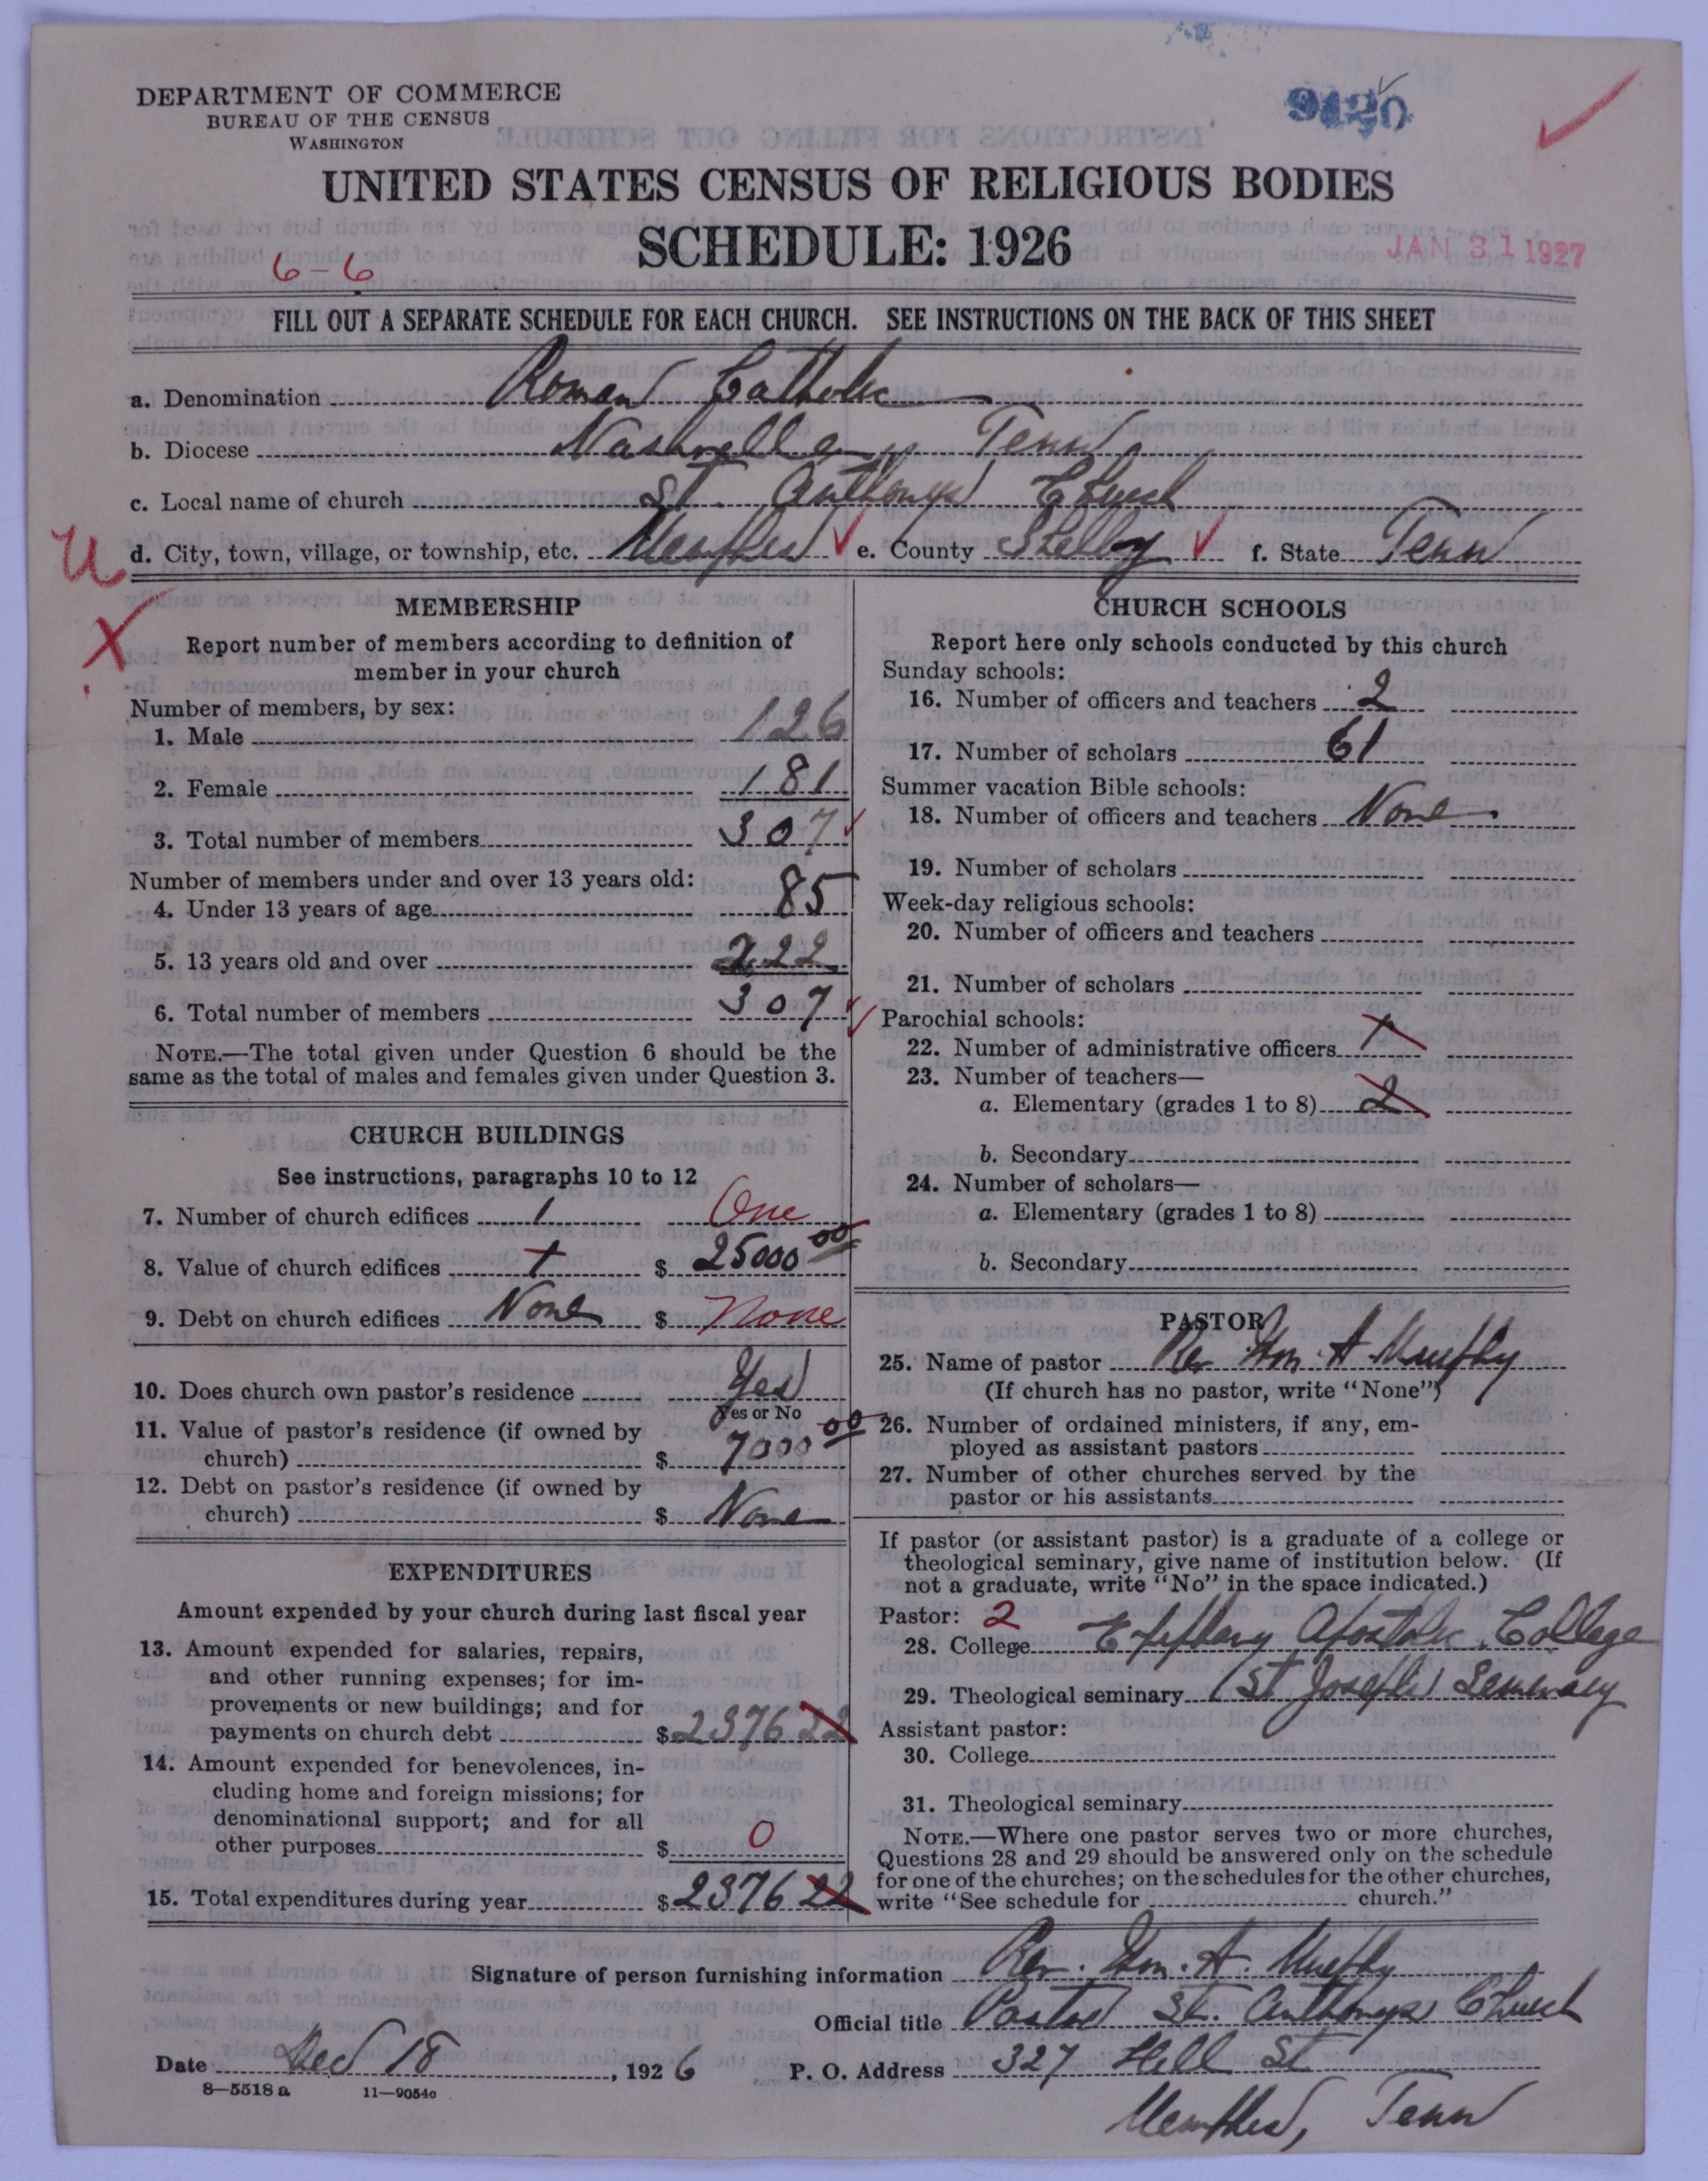 DEPARTMENT OF COMMERCE
BUREAU OF THE CENSUS
WASHINGTON
UNITED STATES CENSUS OF RELIGIOUS BODIES
SCHEDULE: 1926
6-6
JAN 31 1927
FILL OUT A SEPARATE SCHEDULE FOR EACH CHURCH. SEE INSTRUCTIONS ON THE BACK OF THIS SHEET
a. Denomination Roman Catholic
b. Diocese Nashville, Tenn
c. Local name of church St. Anthonys Church
d. City, town, village, or township, etc. Memphis e. County Shelby f. State Tenn
MEMBERSHIP
Report number of members according to definition of
member in your church
Number of members, by sex:
1. Male 126
2. Female 181
3. Total number of members 307
Number of members under and over 13 years old:
4. Under 13 years of age 85
5. 13 years old and over 222
6. Total number of members 307
NOTE.—The total given under Question 6 should be the
same as the total of males and females given under Question 3.
CHURCH BUILDINGS
See instructions, paragraphs 10 to 12
7. Number of church edifices 1 One
8. Value of church edifices 1 $ 25000 00
9. Debt on church edifices None $ None
10. Does church own pastor's residence Yes
Yes or No
11. Value of pastor's residence (if owned by
church) $ 7000 00
12. Debt on pastor's residence (if owned by
church) $ None
EXPENDITURES
Amount expended by your church during last fiscal year
13. Amount expended for salaries, repairs,
and other running expenses; for im-
provements or new buildings; and for
payments on church debt $ 2376 22
14. Amount expended for benevolences, in-
cluding home and foreign missions; for
denominational support; and for all
other purposes $ 0
15. Total expenditures during year $ 2376 22
CHURCH SCHOOLS
Report here only schools conducted by this church
Sunday schools:
16. Number of officers and teachers 2
17. Number of scholars 61
Summer vacation Bible schools:
18. Number of officers and teachers None
19. Number of scholars
Week-day religious schools:
20. Number of officers and teachers
21. Number of scholars
Parochial schools:
22. Number of administrative officers
23. Number of teachers—
a. Elementary (grades 1 to 8) 2
b. Secondary
24. Number of scholars—
a. Elementary (grades 1 to 8)
b. Secondary
PASTOR
25. Name of pastor Rev Wm. A Murphy
(If church has no pastor, write "None")
26. Number of ordained ministers, if any, em-
ployed as assistant pastors
27. Number of other churches served by the
pastor or his assistants
If pastor (or assistant pastor) is a graduate of a college or
theological seminary, give name of institution below. (If
not a graduate, write "No" in the space indicated.)
Pastor: 2
28. College Epiphany Apostolic College
29. Theological seminary St Josephs Seminary
Assistant pastor:
30. College
31. Theological seminary
NOTE.—Where one pastor serves two or more churches,
Questions 28 and 29 should be answered only on the schedule
for one of the churches; on the schedules for the other churches,
write "See schedule for church."
Signature of person furnishing information Rev. Wm. A. Murphy
Official title Pastor St. Anthonys Church
Date Dec 18, 1926 P. O. Address 327 Hill St
8—5518 a 11—9054c
Memphis, Tenn